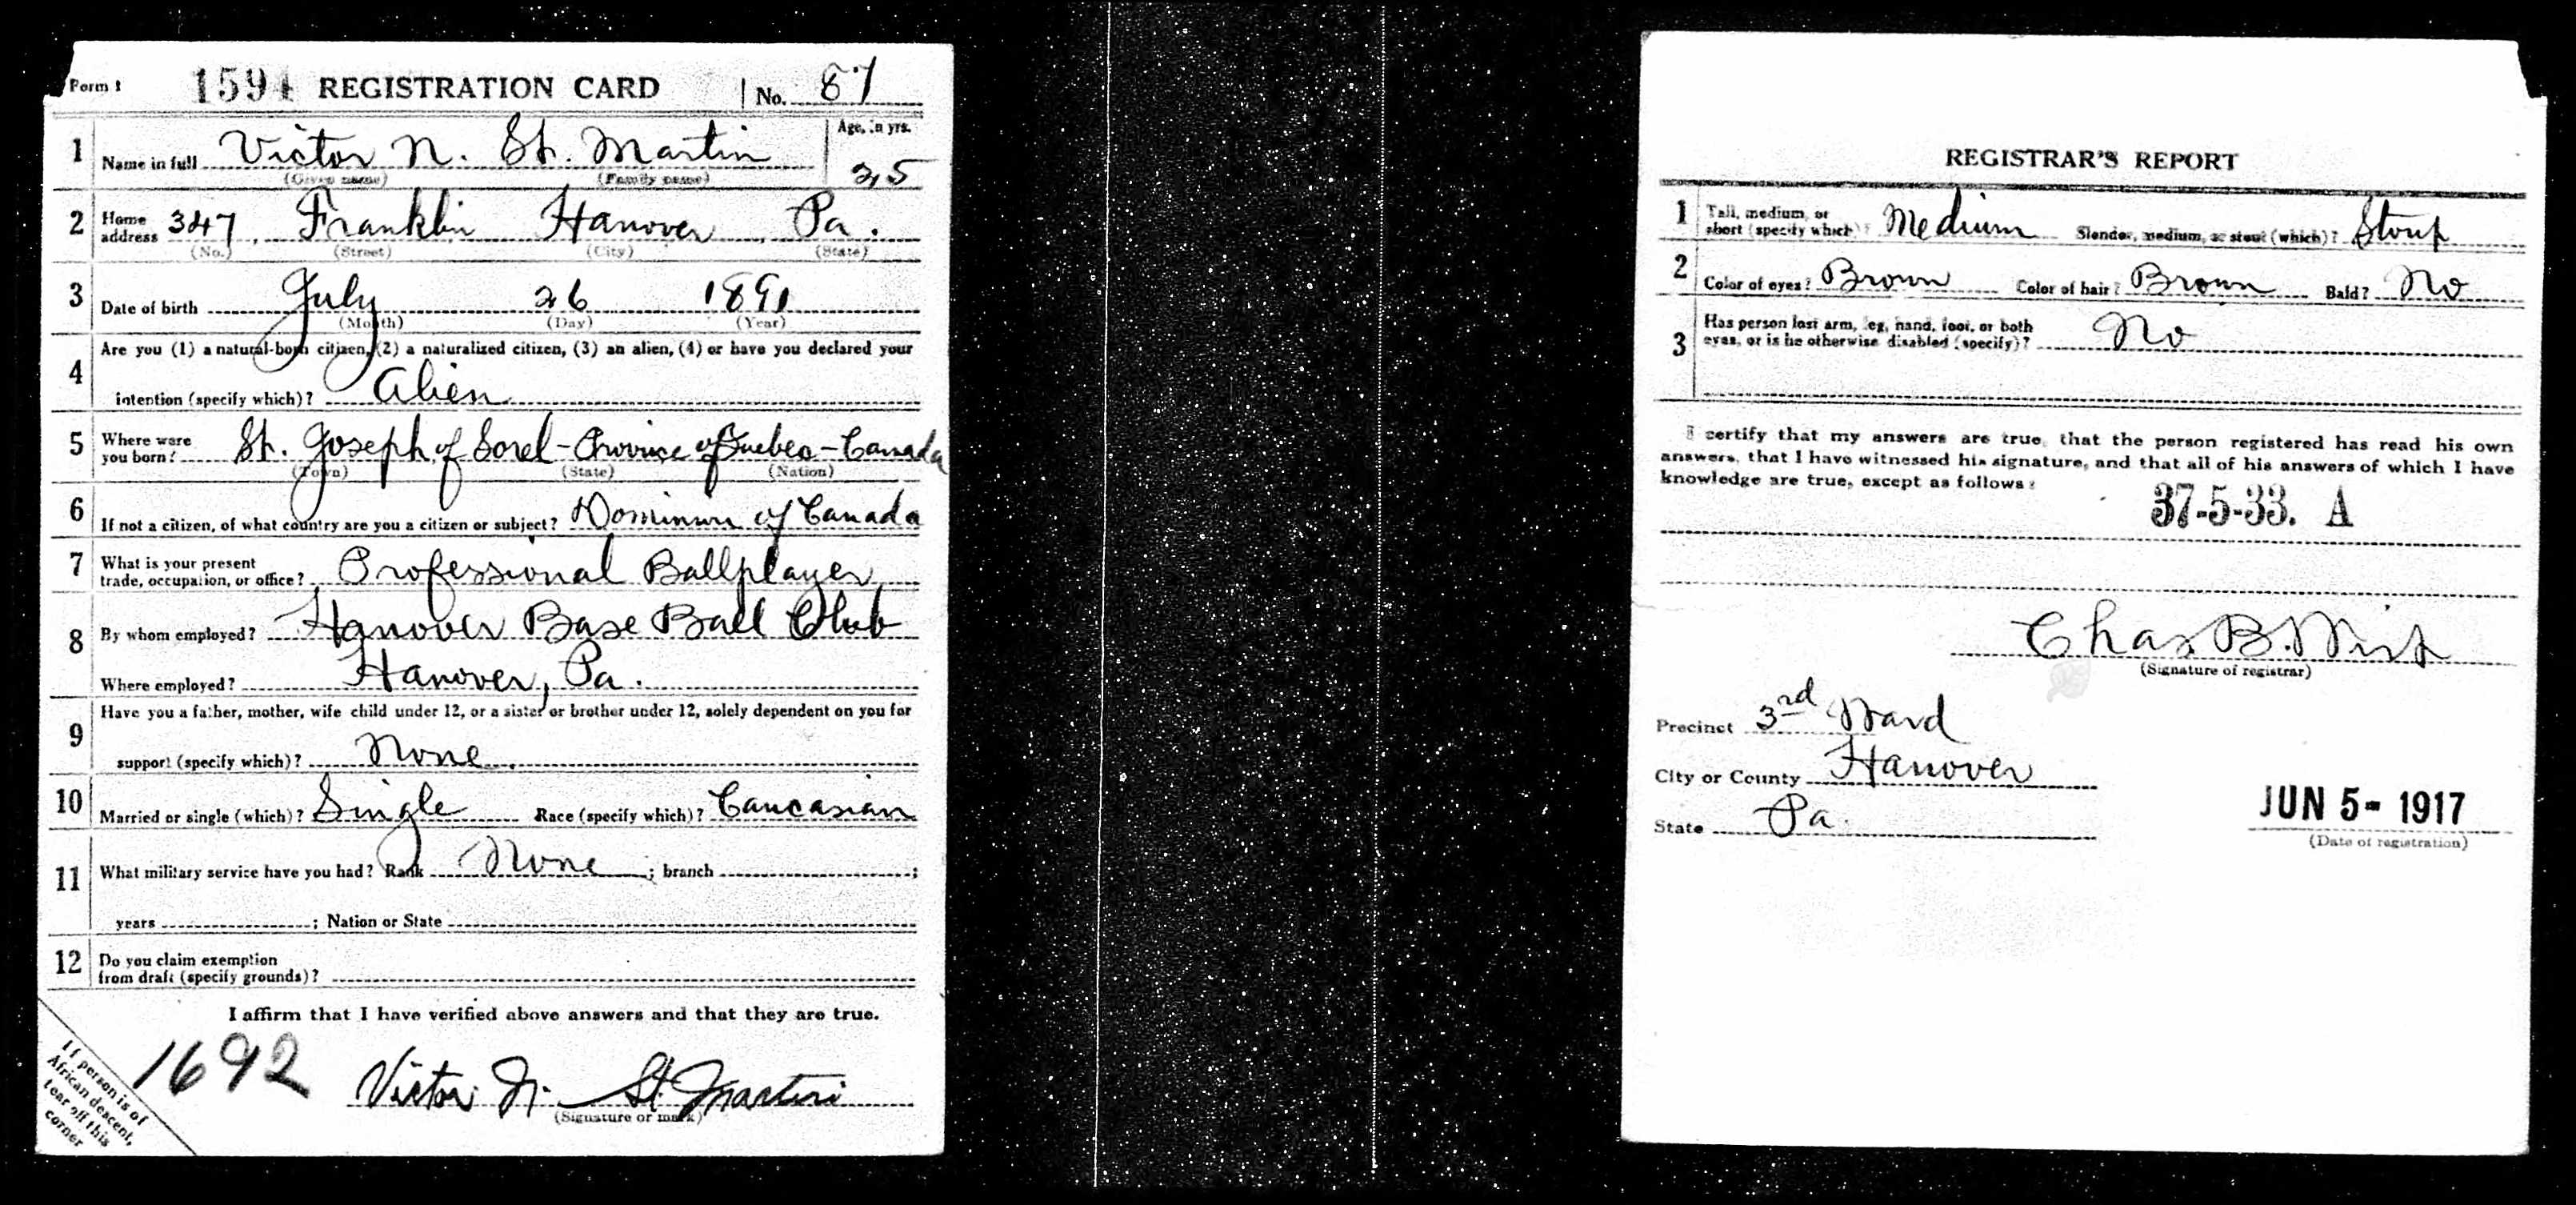 Form 1 1594 REGISTRATION CARD No. 87
1 Name in full Victor N. St. Martin Age, in yrs. 25
(Given name) (Family name)
2 Home address 347, Franklin Hanover, Pa.
(No.) (Street) (City) (State)
3 Date of birth July 26 1891
(Month) (Day) (Year)
4 Are you (1) a natural-born citizen, (2) a naturalized citizen, (3) an alien, (4) or have you declared your
intention (specify which)? Alien
5 Where were you born? St. Joseph of Sorel - Province of Quebec - Canada
(Town) (State) (Nation)
6 If not a citizen, of what country are you a citizen or subject? Dominion of Canada
7 What is your present trade, occupation, or office? Professional Ballplayer
8 By whom employed? Hanover Base Ball Club
Where employed? Hanover, Pa.
9 Have you a father, mother, wife child under 12, or a sister or brother under 12, solely dependent on you for
support (specify which)? None.
10 Married or single (which)? Single Race (specify which)? Caucasian
11 What military service have you had? Rank None ; branch ;
years ; Nation or State
12 Do you claim exemption
from draft (specify grounds)?
I affirm that I have verified above answers and that they are true.
1692 Victor N. St. Martin
(Signature or mark)
If person is of
African descent,
tear off this
corner
REGISTRAR'S REPORT
1 Tall, medium, or short (specify which)? Medium Slender, medium, or stout (which)? Stout
2 Color of eyes? Brown Color of hair? Brown Bald? No
3 Has person lost arm, leg, hand, foot, or both
eyes, or is he otherwise disabled (specify)? No
I certify that my answers are true, that the person registered has read his own
answers, that I have witnessed his signature, and that all of his answers of which I have
knowledge are true, except as follows:
37-5-33. A
Chas. B.
(Signature of registrar)
Precinct 3rd Ward
City or County Hanover
State Pa.
JUN 5- 1917
(Date of registration)